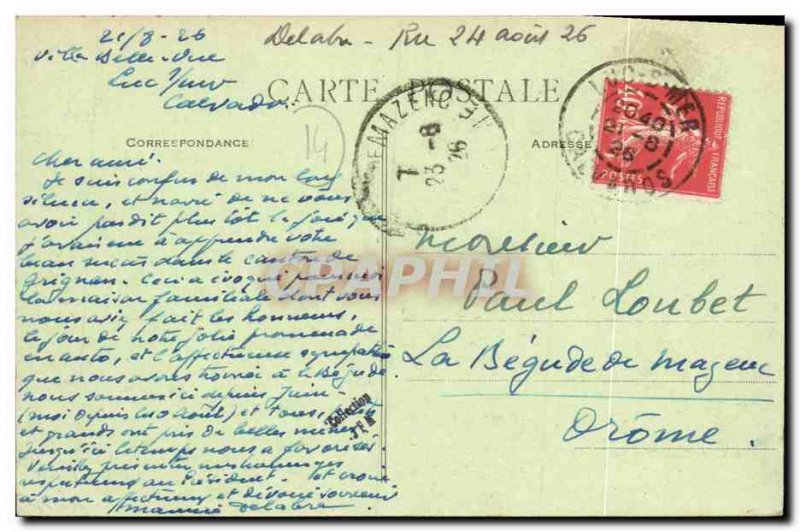 21/8-26
Villa Belle-Vue
Luc s/mer
Calvados
Delabre - Ru 24 août 26
CARTE POSTALE
CORRESPONDANCE
ADRESSE
14
MAZENC
23-8
26
LUC-S-MER
21-8
26
CALVADOS
REPUBLIQUE FRANÇAISE
POSTES
40c
Cher ami.
Je suis confus de mon long
silence, et navré de ne vous
avoir pas dit plus tôt la joie que
j'avais eue à apprendre votre
beau succès dans le canton de
Grignan. Ceci a évoqué pour moi
la maison familiale dont vous
nous aviez fait les honneurs,
le jour de notre jolie promenade
en auto, et l'affectueuse sympathie
que nous avons trouvée à la Bégude
nous sommes ici depuis Juin
(moi depuis le 10 août) et tous, petits
et grands ont pris de belles mines
Jusqu'ici le temps nous a favorisés.
Veuillez présenter mes hommages
respectueux au Président. et croire
à mon affectueux et dévoué souvenir
Maurice Delabre
Collection
J F M
CPAPHIL
Monsieur
Paul Loubet
La Bégude de Mazenc
Drôme.